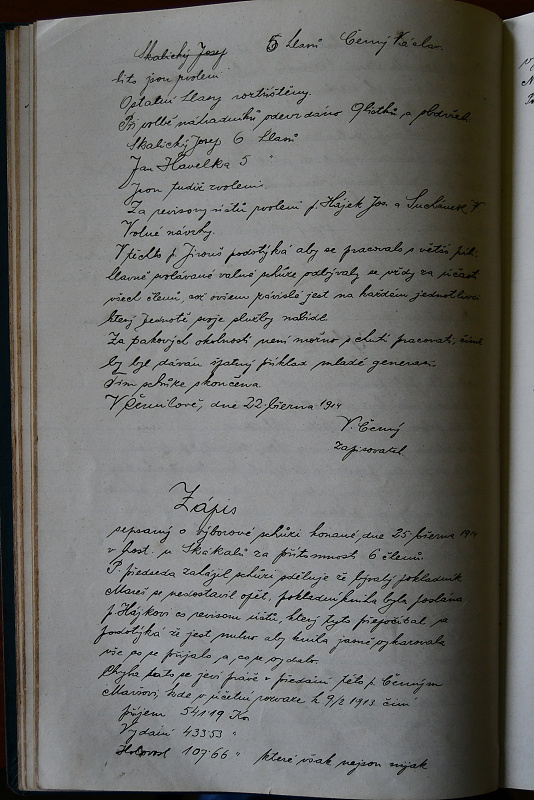 Skalický Josef 5 hlasů Černý Václav.
tito jsou zvoleni
Ostatní hlasy roztříštěny.
Při volbě náhradníků odevzdáno 9 lístků a obdrželi
Skalický Josef 6 hlasů
Jan Havelka 5 "
jsou tudíž zvoleni.
Za revisory účtů zvoleni p. Hájek Jos. a Suchánek V
Volné návrhy.
V těchto p. Jirouš podotýká aby se pracovalo s větší píli,
hlavně svolávané valné schůze odbývaly se vždy za účasti
všech členů, což ovšem závislé jest na každém jednotlivci
který Jednotě svoje služby nabídl.
Za takových okolností není možno s chutí pracovati, čímž
by byl dáván špatný příklad mladé generaci.
Tím schůze skončena.
V Černilově, dne 22. března 1914
V. Černý
zapisovatel.
Zápis
sepsaný o výborové schůzi konané dne 25 března 1914
v host. u Skákalů za přítomnosti 6 členů.
P. předseda zahájil schůzi sděluje že bývalý pokladník
Mareš se nedostavil opět, pokladní kniha byla poslána
p. Hájkovi co revisoru účtů, který tyto přepočítal, a
podotýká že jest nutno aby kniha jasně vykazovala
vše co se přijalo a co se vydalo.
Chyba tato se jeví právě v předání této p. Černým
Marešovi, kde v účetní rozvaze z 9/2 1913 činí
příjem 54119 Kor
Vydání 43353 "
Hotovost 10766 " které však nejsou nijak